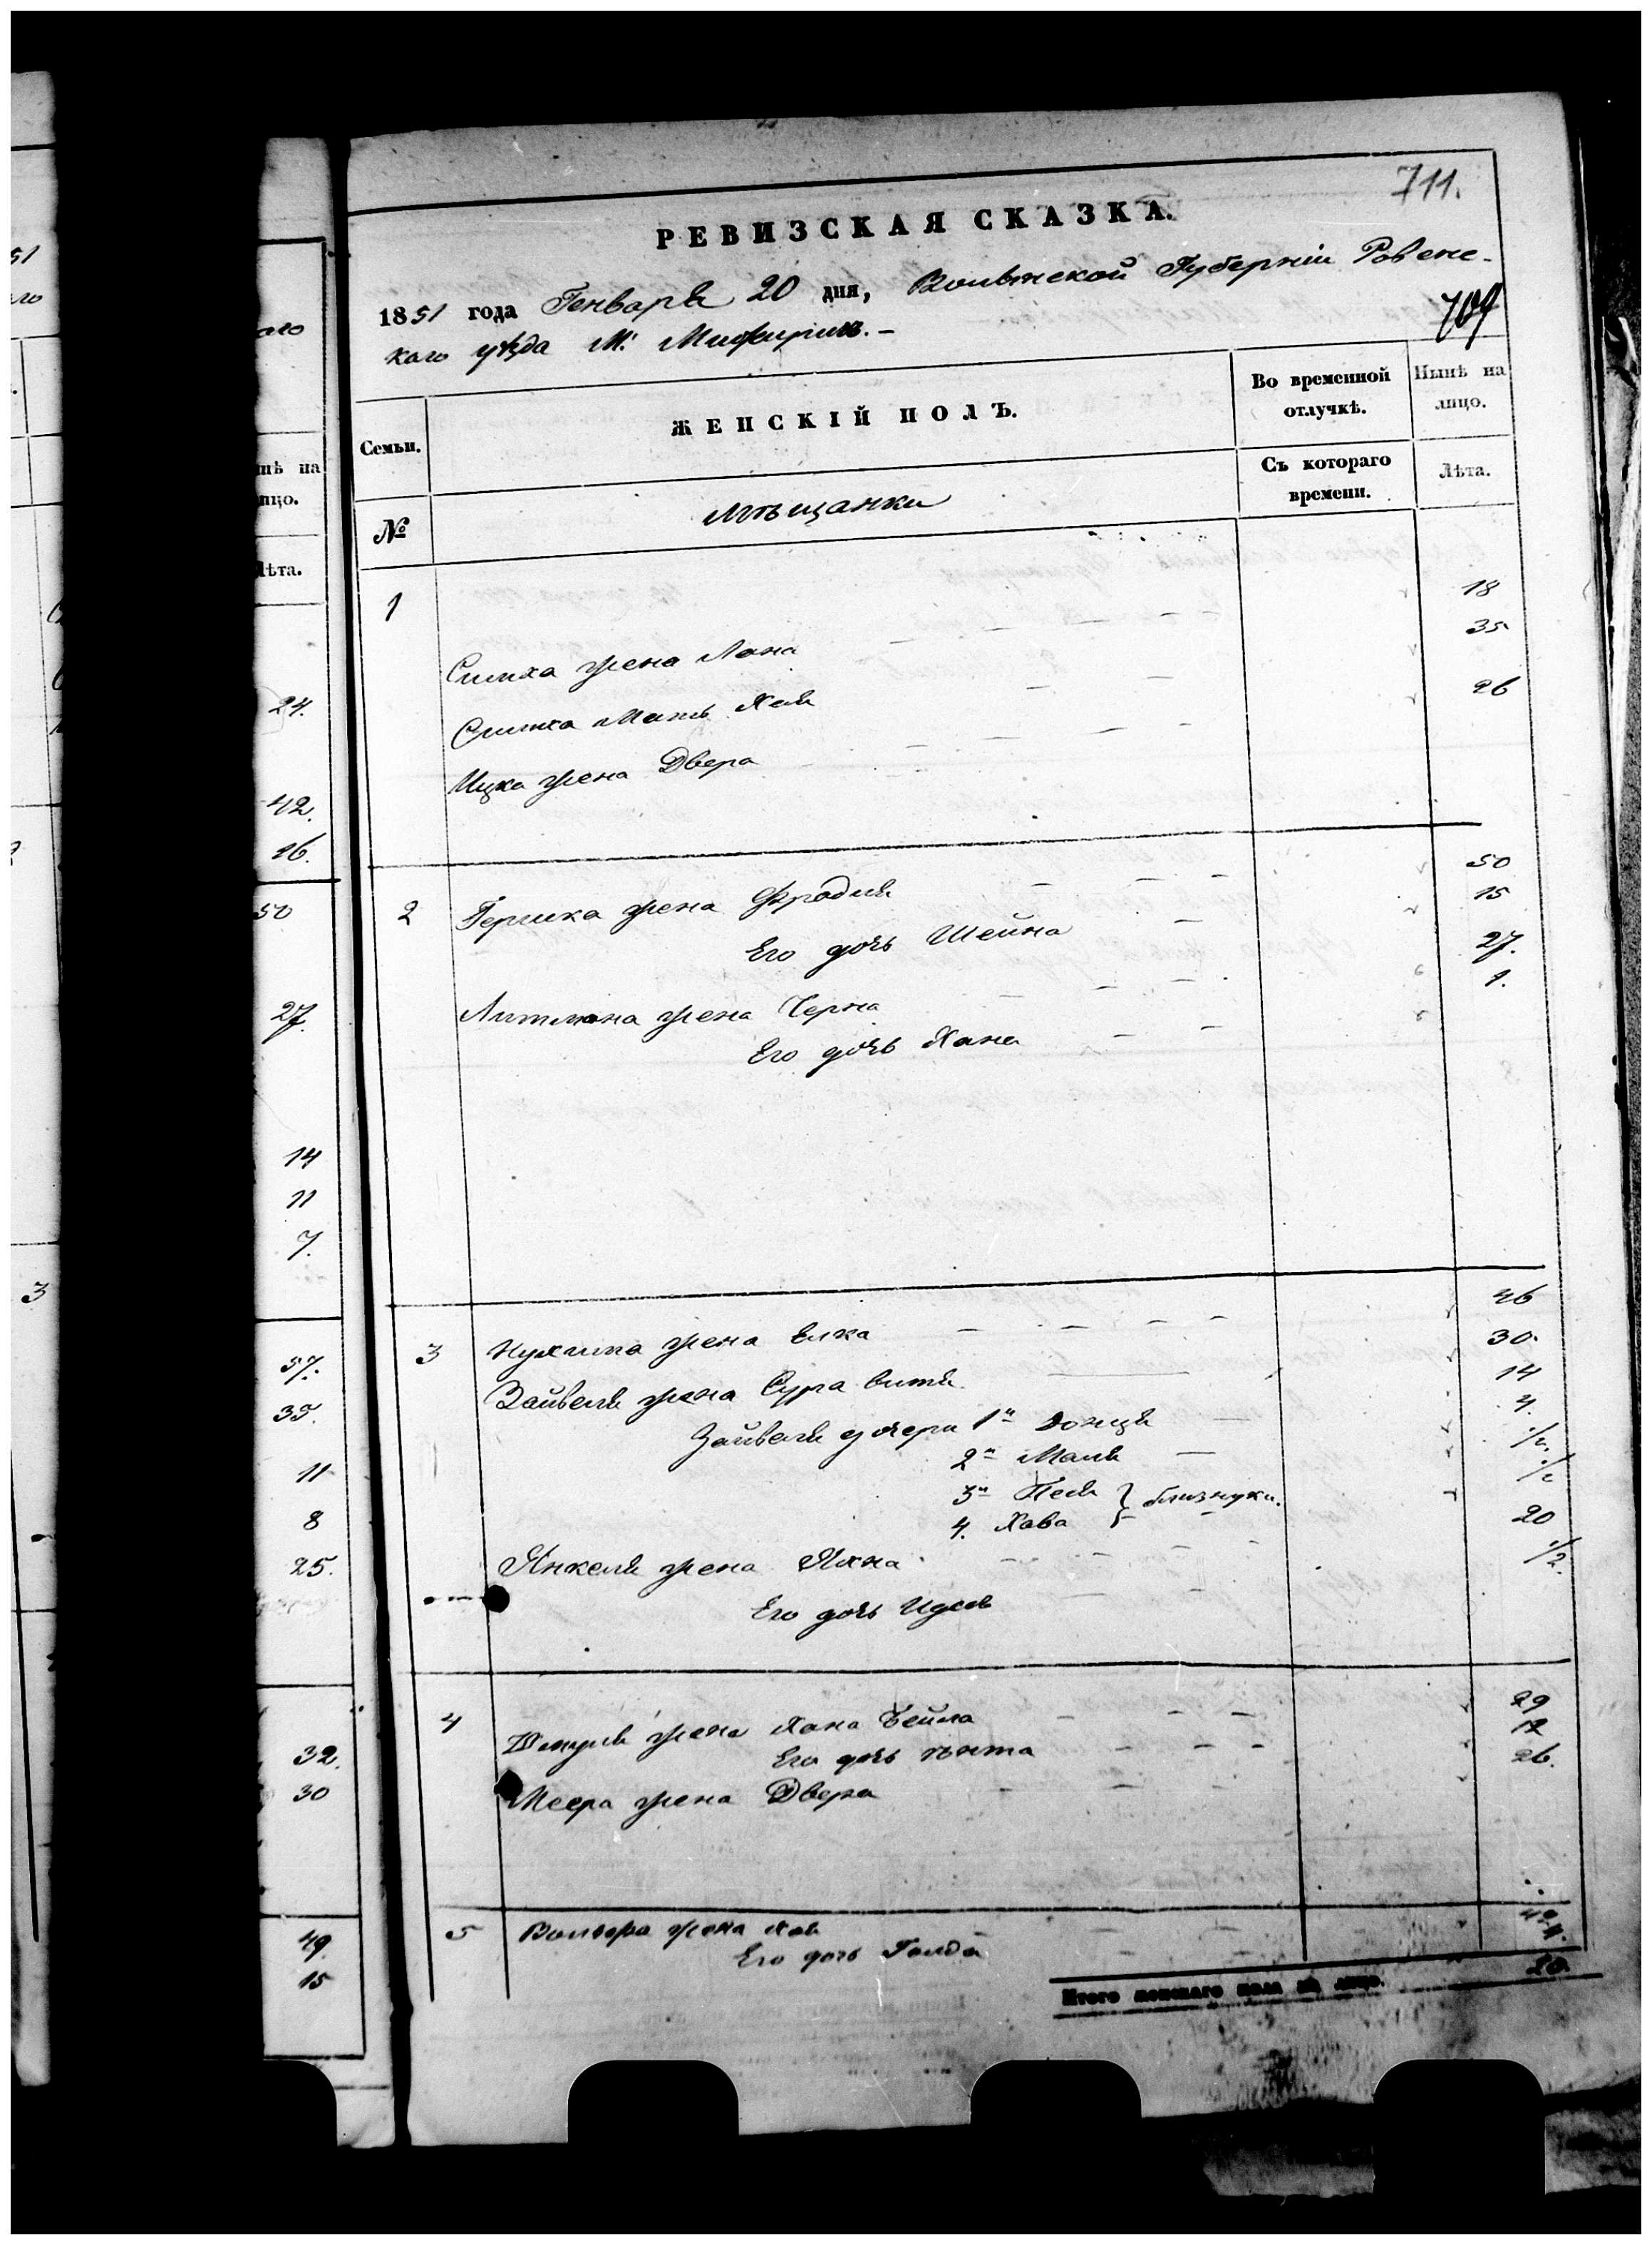 711.
РЕВИЗСКАЯ СКАЗКА.
1851 года Генваря 20 дня, Волынской Губерніи Ровенс-
каго уѣзда М.
709
Семьи.
ЖЕНСКІЙ ПОЛЪ.
Во временной отлучкѣ.
Нынѣ на лицо.
№
мѣщанки
Съ котораго времени.
Лѣта.
1
18
Симха жена Лана
35
Симха Мать Хая
26
Ицка жена Двера
2 Гершка жена Фрадля 50
Его дочь Шейна 15
Литмана жена Черна 27.
Его дочь Хана 1.
3 Нухима жена Елка 46
Зайвеля жена Сура битя 30.
Зайвеля дочери 1я 14
2я Маля 4.
3я Песя } близнуки. 1/2.
4. Хава 1/2
Янкеля жена Яхна 20
Его дочь 1/2.
4 Шмуля жена Хана Бейла 29
Его дочь 12
Меера жена Двера 26.
5 Вольфа жена Хая
Его дочь Голда
Итого женскаго пола на лицо. 20.
ѣта.
24.
42.
26.
50
27.
14
11
7.
57.
35.
11
8
25.
32.
30
49.
15
51
3